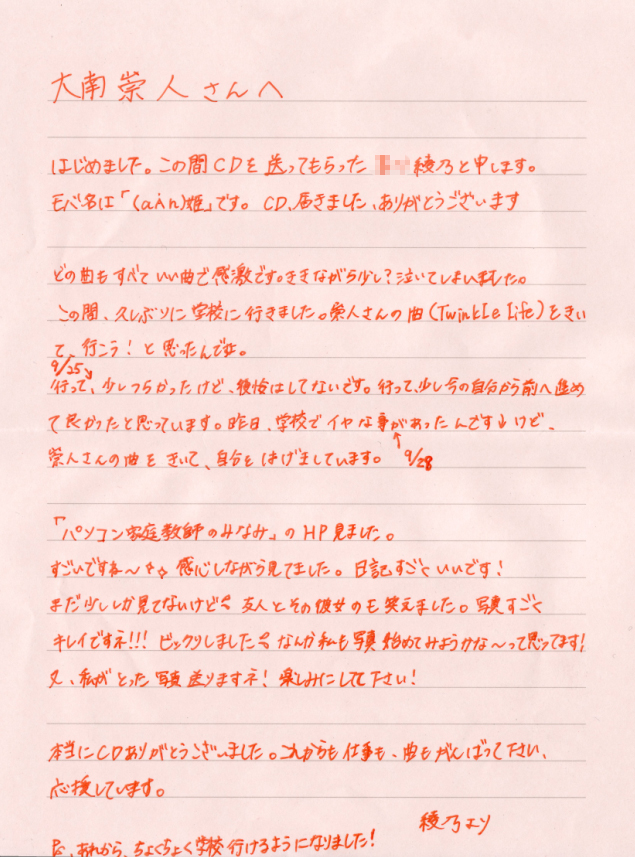 大南崇人さんへ
はじめました。この間CDを送ってもらった 綾乃と申します。
モバ名は「(aін)姫」です。CD、届きました、ありがとうございます
どの曲もすべていい曲で感激です。ききながら少し?泣いてしまいました。
この間、久しぶりに学校に行きました。崇人さんの曲(Twinkle life)をきい
て、行こう!と思ったんです。
9/25↘
行って、少しつらかったけど、後悔はしてないです。行って、少し今の自分から前へ進め
て良かったと思っています。昨日、学校でイヤな事があったんです↓けど、
崇人さんの曲をきいて、自分をはげましています。 9/28
「パソコン家庭教師のみなみ」のHP見ました。
すごいですね〜☆☆ 感心しながら見てました。日記すごくいいです!
まだ少ししか見てないけど 友人とその彼女のも笑えました。写真すごく
キレイですネ!!! ビックリしました なんか私も写真始めてみようかな〜って思ってます!
又、私がとった写真送りますネ!楽しみにして下さい!
本当にCDありがとうございました。これからも仕事も、曲もがんばって下さい、
応援しています。
綾乃より
P.S、あれから、ちょくちょく学校行けるようになりました!